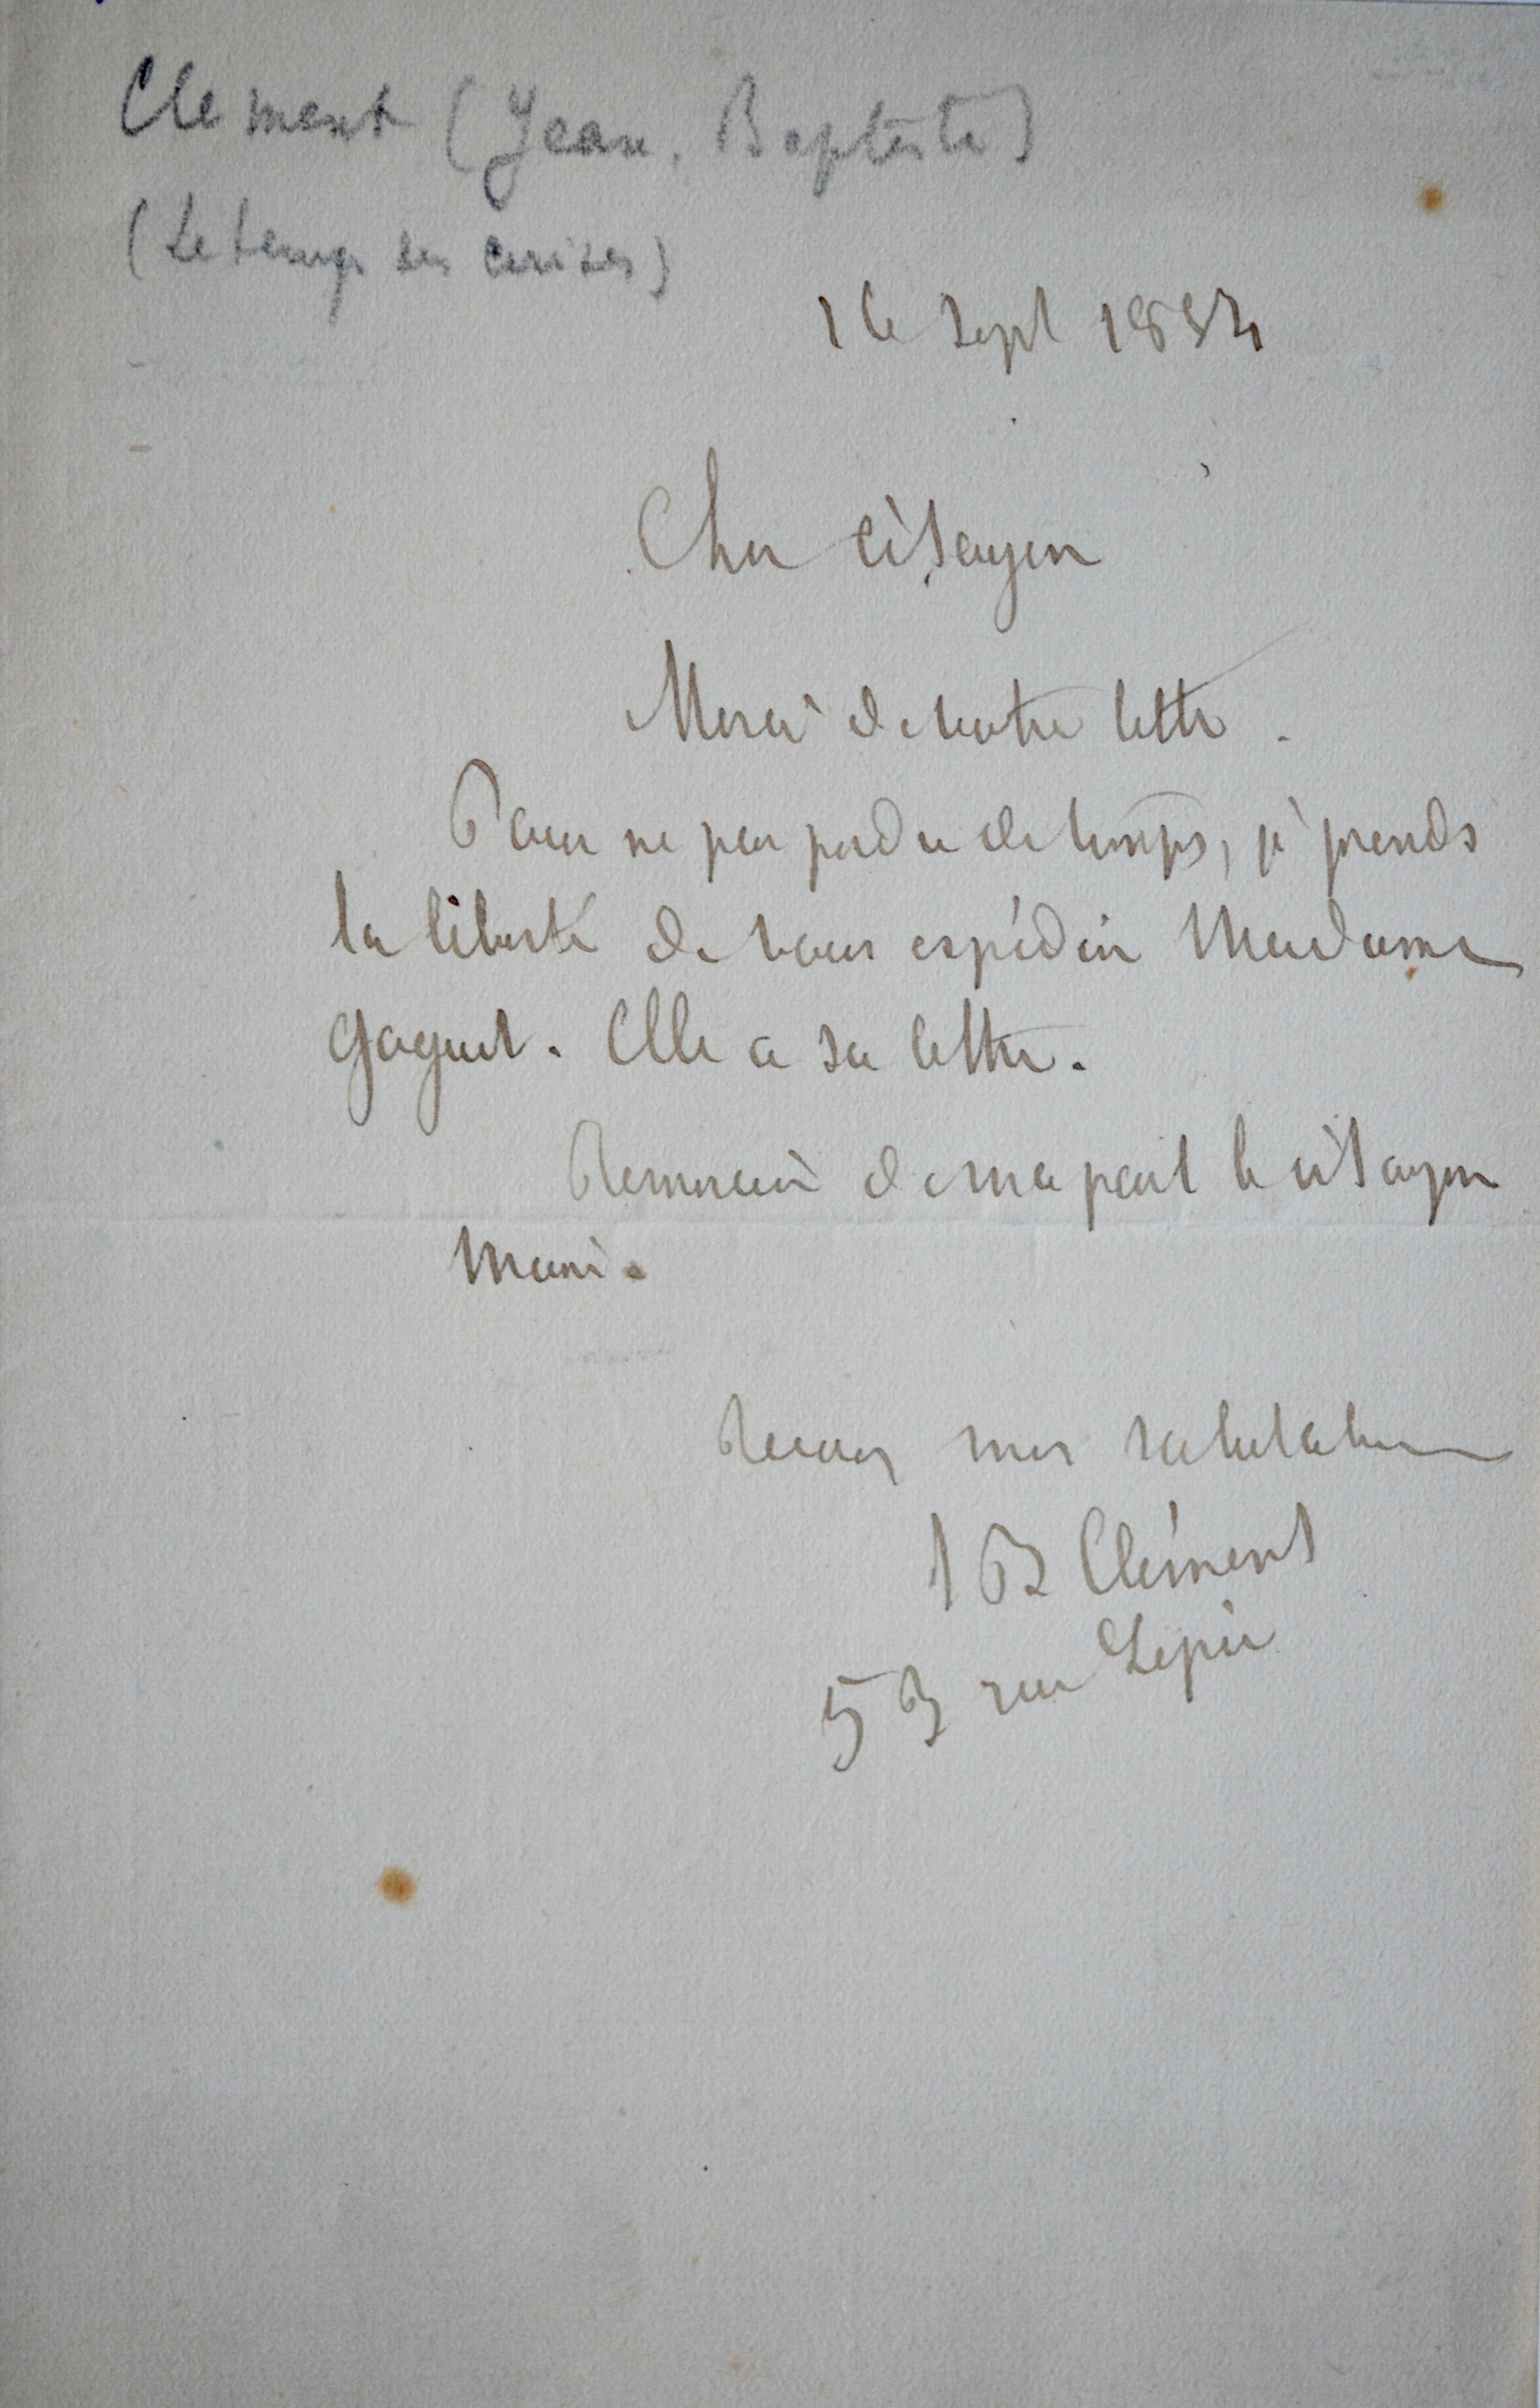 Clement (Jean, Baptiste)
(Le temps des cerises)
16 Sept 1884
Cher Citoyen
Merci de votre lettre.
Pour ne pas perdre de temps, je prends
la liberté de vous expédier Madame
Gaguet. Elle a sa lettre.
Remercier de ma part le citoyen
Recevez mes salutations
JB Clément
53 rue Lepic